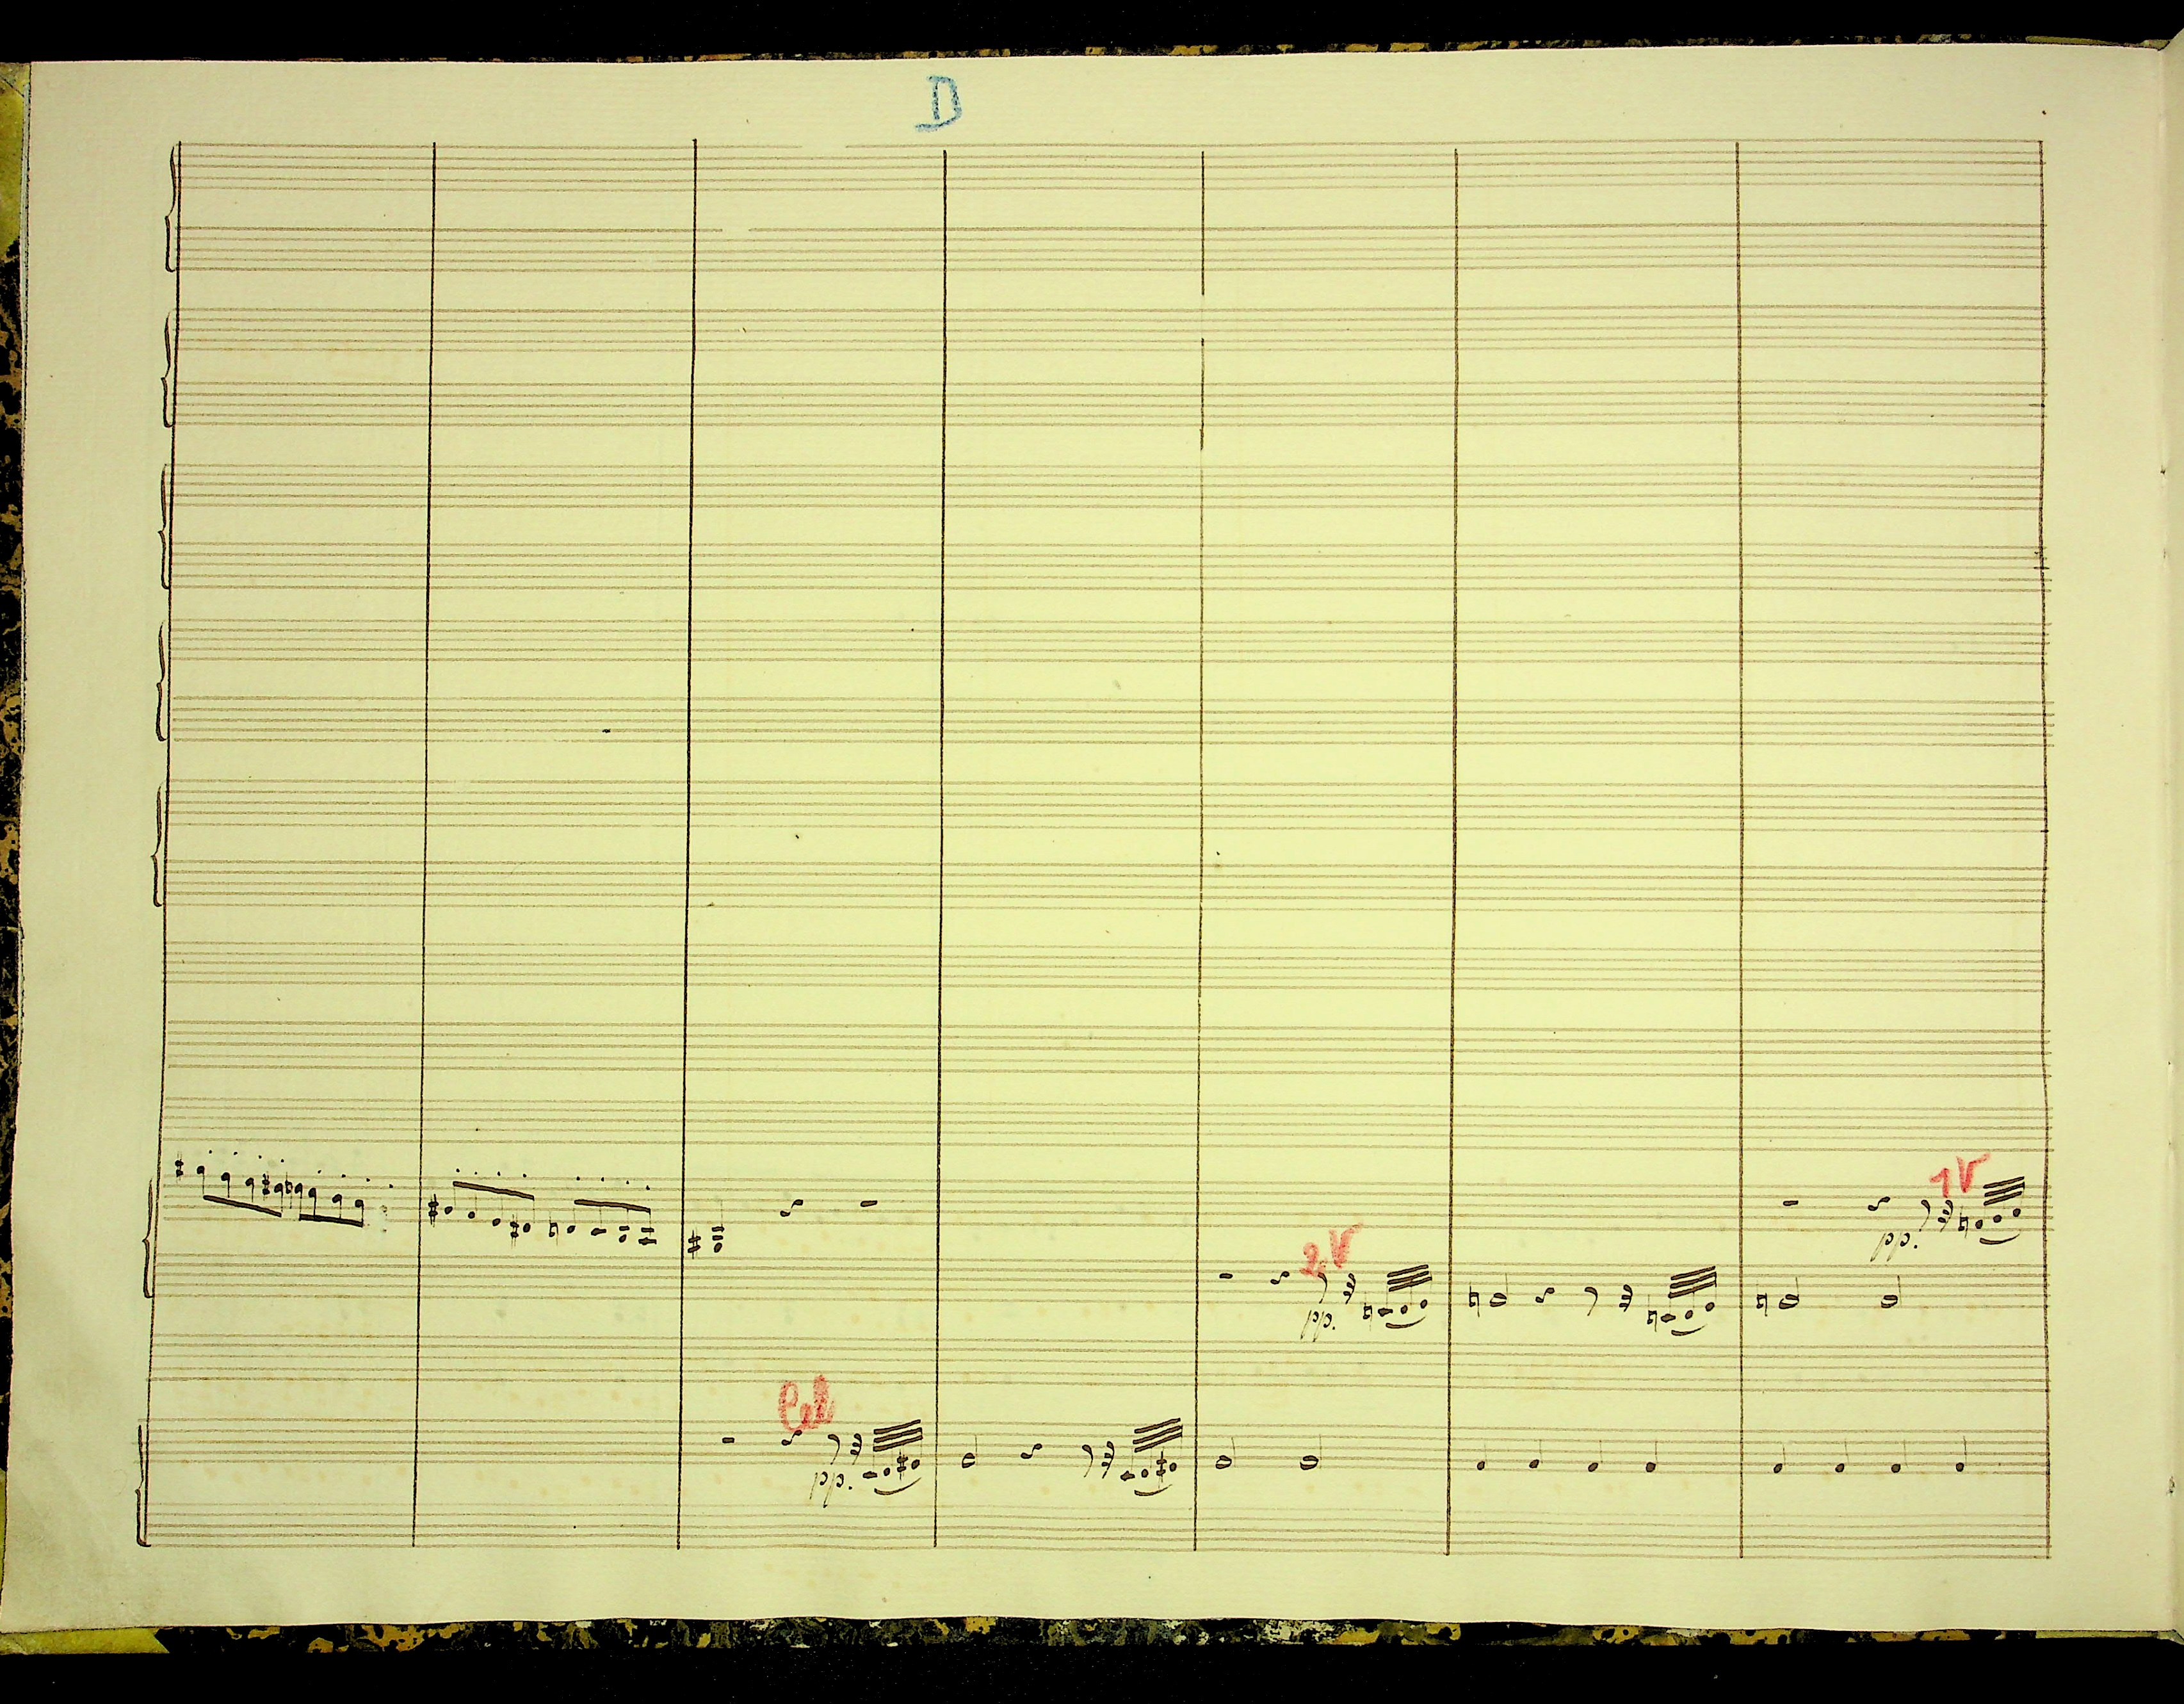 D
1V
pp.
2V
pp.
Cel
pp.